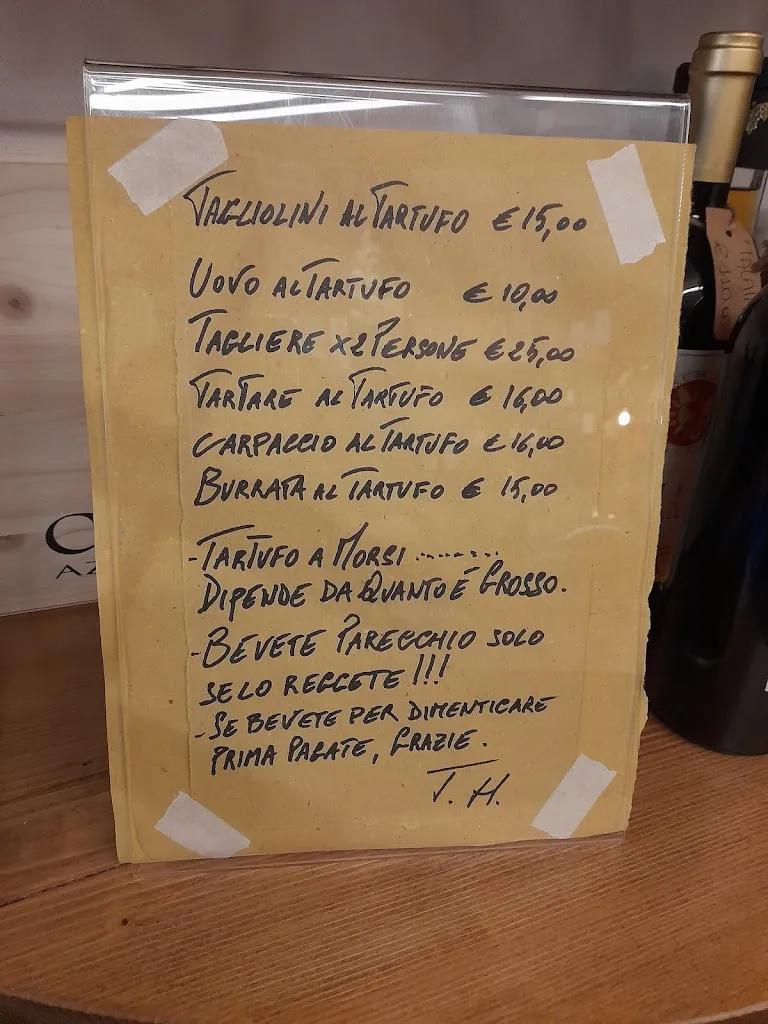 TAGLIOLINI AL TARTUFO € 15,00
UOVO AL TARTUFO € 10,00
TAGLIERE X2 PERSONE € 25,00
TARTARE AL TARTUFO € 16,00
CARPACCIO AL TARTUFO € 16,00
BURRATA AL TARTUFO € 15,00
-TARTUFO A MORSI ..........
DIPENDE DA QUANTO É GROSSO.
-BEVETE PARECCHIO SOLO
SE LO REGGETE !!!
-SE BEVETE PER DIMENTICARE
PRIMA PAGATE, GRAZIE.
T. H.
AZ